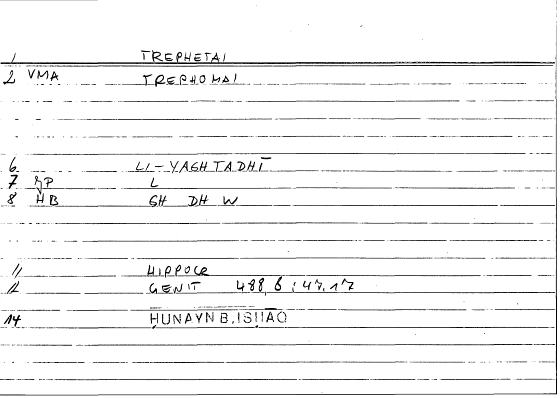 1 TREPHETAI
2 VMA TREPHOMAI
6 LI-YAGHTADHĪ
7 L
8 HB GH DH W
11 HIPPOCR
12 GENIT 488,6 ; 47,17
14 ḤUNAYN B. ISḤĀQ